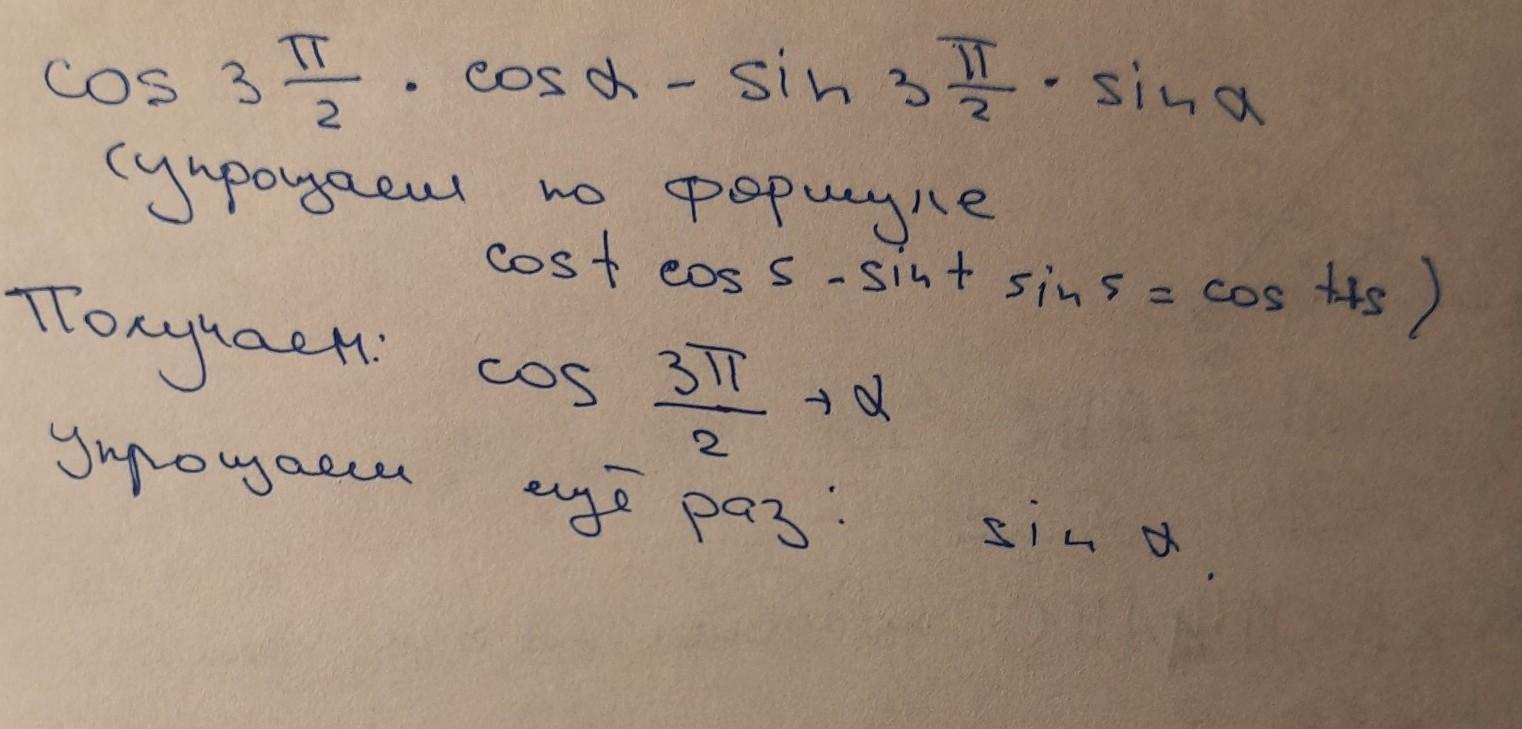 cos 3 π/2 · cos α - sin 3 π/2 · sin α
(упрощаем по формуле
cos t cos s - sin t sin s = cos t+s)
Получаем: cos 3π/2 + α
Упрощаем ещё раз: sin α.